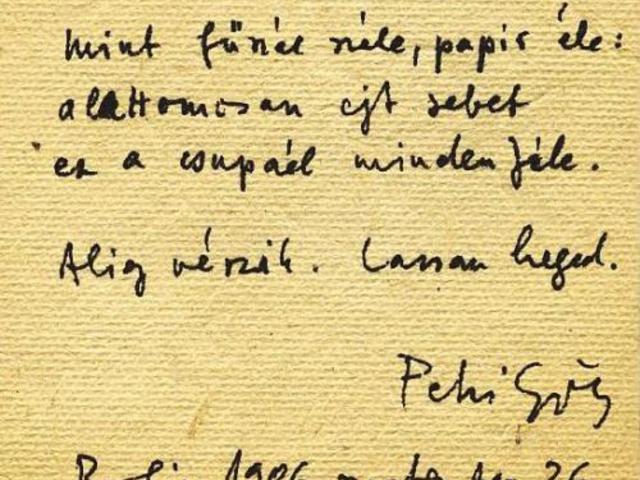 mint fűszál széle, papír éle:
alattomosan ejt sebet
ez a csupaél mindenféle.
Alig vérzik. Lassan heged.
Petri Gy
Berlin, 1986